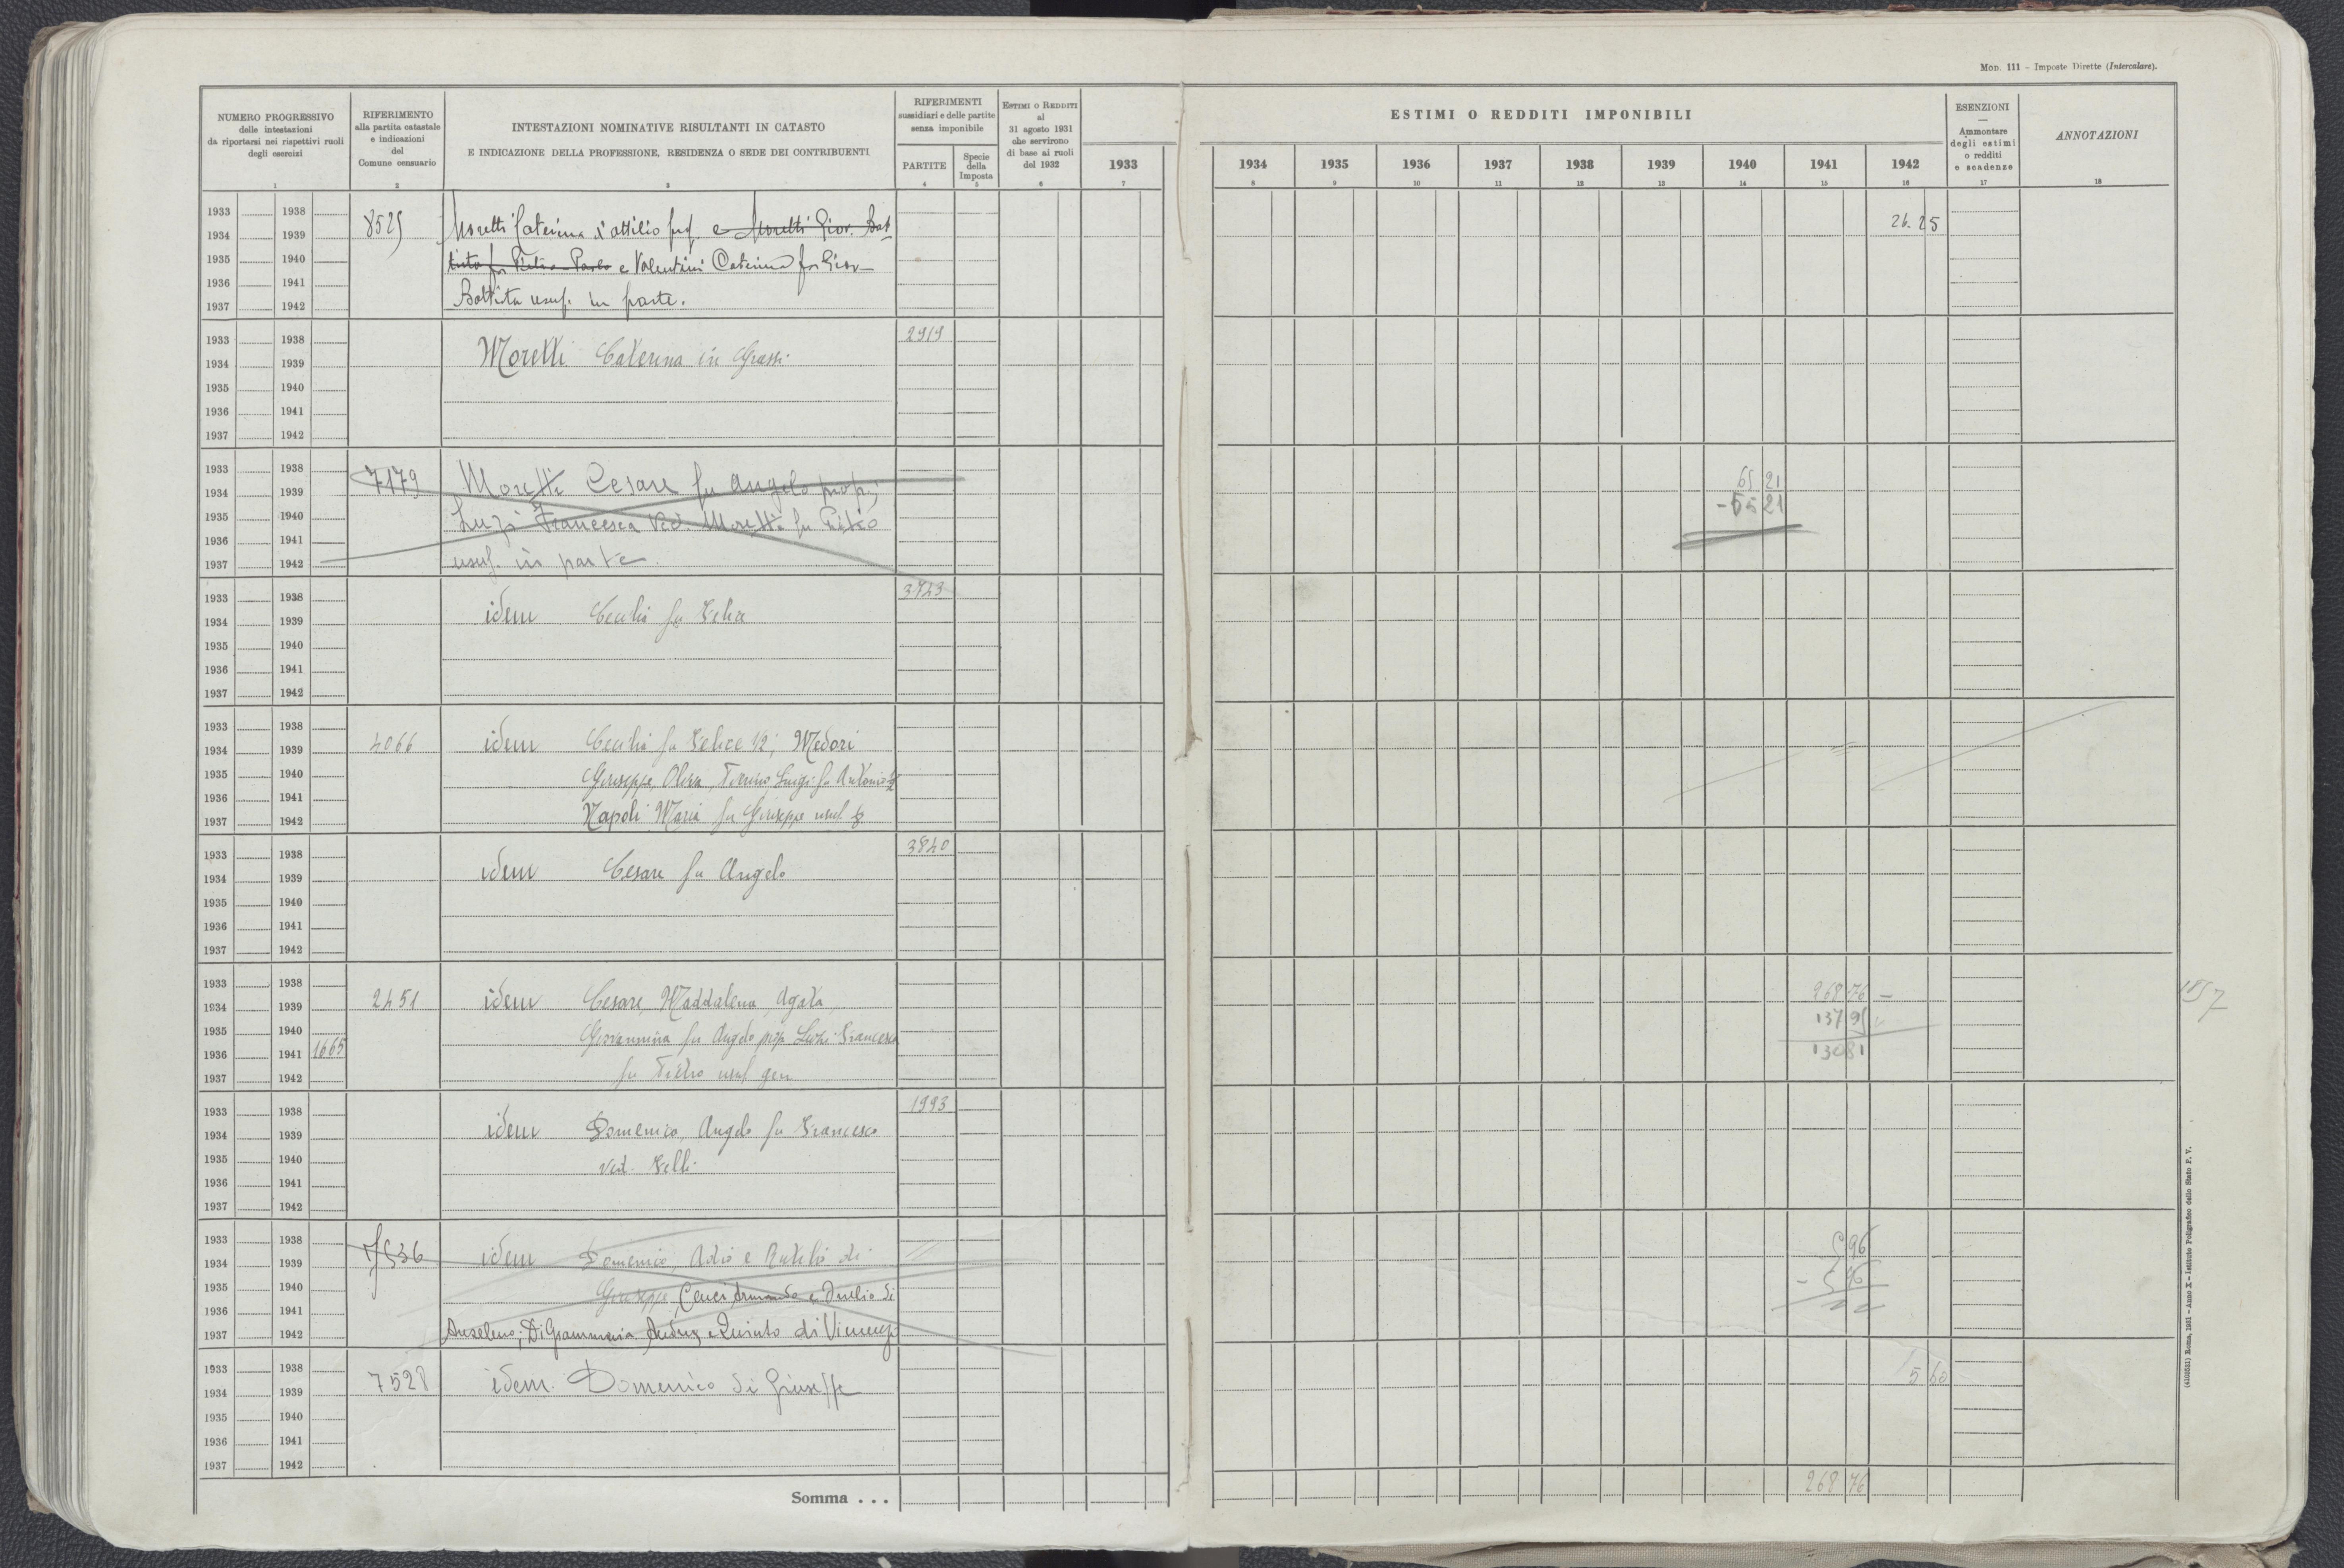 Mod. 111 – Imposte Dirette (Intercalare).
NUMERO PROGRESSIVO
delle intestazioni
da riportarsi nei rispettivi ruoli
degli esercizi
1
RIFERIMENTO
alla partita catastale
e indicazioni
del
Comune censuario
2
INTESTAZIONI NOMINATIVE RISULTANTI IN CATASTO
E INDICAZIONE DELLA PROFESSIONE, RESIDENZA O SEDE DEI CONTRIBUENTI
3
RIFERIMENTI
sussidiari e delle partite
senza imponibile
PARTITE
4
Specie
della
Imposta
5
Estimi o Redditi
al
31 agosto 1931
che servirono
di base ai ruoli
del 1932
6
ESTIMI O REDDITI IMPONIBILI
1933 1934 1935 1936 1937 1938 1939 1940 1941 1942
7 8 9 10 11 12 13 14 15 16
ESENZIONI
—
Ammontare
degli estimi
o redditi
e scadenze
17
ANNOTAZIONI
18
1933 1938
1934 1939 8525 Moretti Caterina d'Attilio prop. e Moretti Giov. Bat 26.25
1935 1940 tista fu Pietro Paolo e Valentini Caterina fu Giov
1936 1941
1937 1942 Battista usuf. in parte.
1933 1938 2919
1934 1939 Moretti Caterina in Grassi
1935 1940
1936 1941
1937 1942
1933 1938
1934 1939 7179 Moretti Cesare fu Angelo prop; 65 21
1935 1940 Luzi Francesca ved. Moretti fu - 65 21
1936 1941
1937 1942 usuf. in parte
1933 1938 3723
1934 1939 idem Cecilia fu Felice
1935 1940
1936 1941
1937 1942
1933 1938
1934 1939 4066 idem Cecilia fu Felice 1/2; Medori
1935 1940 Giuseppe, Luigi fu Antonio
1936 1941
1937 1942 Napoli Maria fu Giuseppe usuf
1933 1938 3840
1934 1939 idem Cesare fu Angelo
1935 1940
1936 1941
1937 1942
1933 1938
1934 1939 2451 idem Cesare, Maddalena, Agata, 268 76 –
1935 1940 Giovannina fu Angelo prop Luzi Francesca 137 95
1936 1941 1665 130 81
1937 1942 fu Pietro usuf gen
1933 1938 1993
1934 1939 idem Domenico, Angelo fu Francesco
1935 1940 ved. Felli
1936 1941
1937 1942
1933 1938
1934 1939 7536 idem Domenico, e di 5 96
1935 1940 Giuseppe, Cenci Armando e Duilio di - 5 96
1936 1941
1937 1942 Anselmo; Di Grammaria e Quinto di Vincenzo
1933 1938
1934 1939 7528 idem. Domenico di Giuseppe 5 60
1935 1940
1936 1941
1937 1942
Somma . . . 268 76
(4103031) Roma, 1931 – Anno X – Istituto Poligrafico dello Stato P. V.